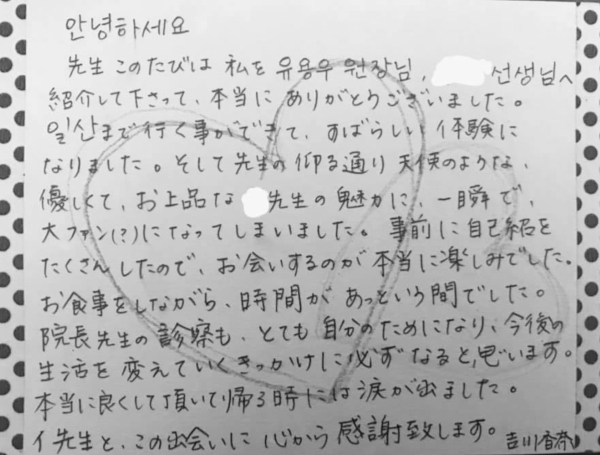 안녕하세요
先生 このたびは 私を 유용우 원장님, 선생님へ
紹介して下さって、本当に ありがとうございました。
일산まで行く事ができて、すばらしい 体験に
なりました。そして先生の仰る通り 天使のような、
優しくて、お上品な 先生の魅力に、一瞬で、
大ファン(?)になってしまいました。事前に自己紹を
たくさんしたので、お会いするのが本当に楽しみでした。
お食事をしながら、時間が あっという間でした。
院長先生の診察も、とても自分のためになり、今後の
生活を変えていくきっかけに必ずなると、思います。
本当に良くして頂いて帰る時には涙が出ました。
イ先生と、この出会いに 心から 感謝致します。 吉川香奈